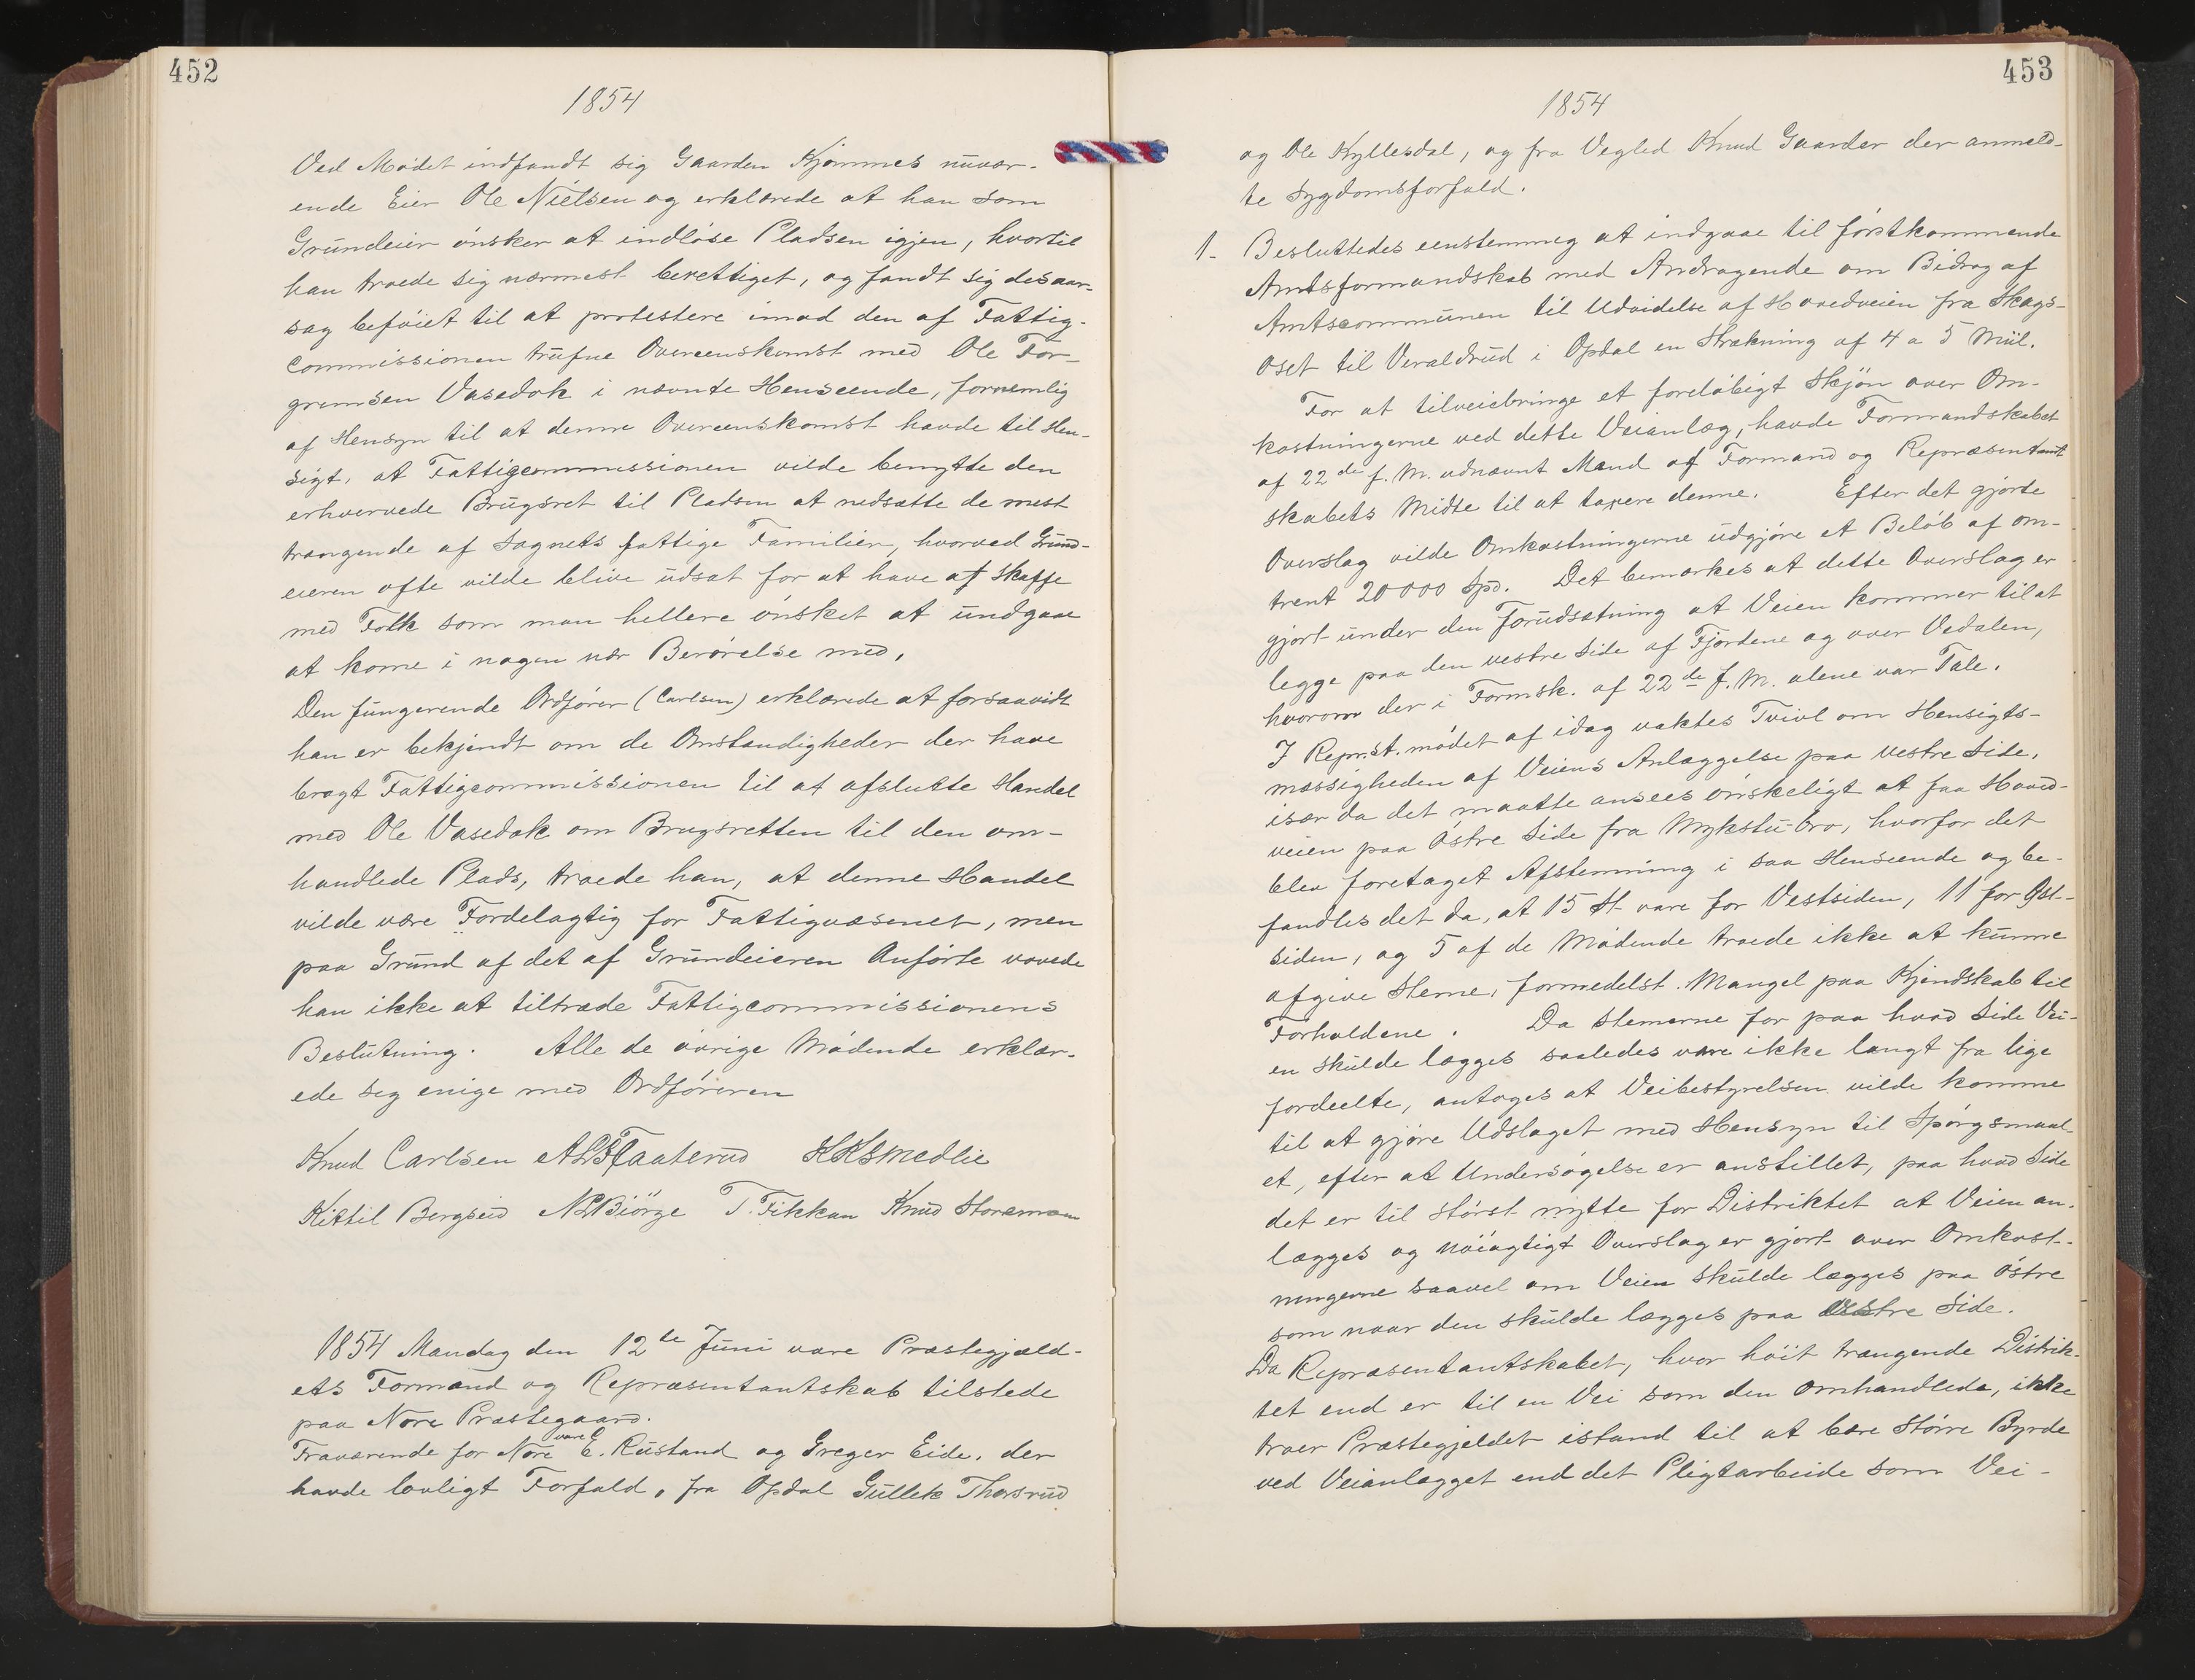 452
1854
Ved Mødet indfandt sig Gaarden Kjømmes nuvær-
ende Eier Ole Nielsen og erklærede at han som
Grundeier ønsker at indløse Pladsen igjen, hvortil
han troede sig nærmest berettiget, og fandt sig desaar-
sag beføiet til at protestere imod den af Fattig-
commissionen trufne Overeenskomst med Ole Tor-
gremsen Vasedok i nævnte Henseende, fornemlig
af Hensyn til at denne Overeenskomst havde til Hen-
sigt, at Fattigcommissionen vilde benytte den
erhvervede Brugsret til Pladsen at nedsætte de mest
trængende af Sognets fattige Familier, hvorved Grund-
eieren ofte vilde blive udsat for at have at skaffe
med Folk som man hellere ønsket at undgaae
at kome i nogen nær Berørelse med,
Den fungerende Ordfører (Carlsen) erklærede at forsaavidt
han er bekjendt om de Omstændigheder der have
bragt Fattigcommissionen til at afslutte Handel
med Ole Vasedok om Brugsretten til den om-
handlede Plads, troede han, at denne Handel
vilde være Fordelagtig for Fattigvæsenet, men
paa Grund af det af Grundeieren Anførte vovede
han ikke at tiltræde Fattigcommissionens
Beslutning. Alle de øvrige Mødende erklær-
ede sig enige med Ordføreren
Knud Carlsen Flaaterud KKSmedlie
Kittil Bergseid Biørge T. Fikkan Knud Storemoen
1854 Mandag den 12te Juni vare Præstegjæld-
ets Formænd og Repræsentantskab tilstede
paa Nore Præstegaard.
Fraværende for Nore vare E. Rustand og Greger Eide, der
havde lovligt Forfald, fra Opdal Gullek Thorsrud
453
1854
og Ole Kyllesdal, og fra Vegled Knud Gaarder der anmeld-
te Sygdomsforfald.
1- Besluttedes eenstemmig at indgaae til førstkommende
Amtsformandskab med Andragende om Bidrag af
Amtscommunen til Udvidelse af Hovedveien fra Skogs-
oset til Veraldrud i Opdal en Strækning af 4 a 5 Miil.
For at tilveiebringe et foreløbigt Skjøn over Om-
kostningerne ved dette Veianlæg, havde Formandskabet
af 22de f. M. udnævnt Mænd af Formand og Repræsentant
skabets Midte til at taxere denne. Efter det gjorte
Overslag vilde Omkostningerne udgjøre et Beløb af om-
trent 20000 Spd. Det bemærkes at dette Overslag er
gjort under den Forudsætning at Veien kommer til at
legge paa den vestre Side af Fjordene og over Vedalen,
hvorom der i Formsk. af 22de f. M. alene var Tale.
I Repr.st. mødet af idag vaktes Tvivl om Hensigts-
mæssigheden af Veiens Anlæggelse paa vestre Side,
især da det maatte ansees ønskeligt at faa Hoved-
veien paa Østre Side fra Mykstu-bro, hvorfor det
blev foretaget Afstemning i saa Henseende og be-
fandtes det da, at 15 St vare for Vestsiden, 11 for Øst-
siden, og 5 af de Mødende troede ikke at kunne
afgive Steme, formedelst Mangel paa Kjendskab til
Forholdene. Da Stemerne for paa hvad Side Vei-
en skulde lægges saaledes vare ikke langt fra lige
fordeelte, antoges at Veibestyrelsen vilde komme
til at gjøre Udslaget med Hensyn til Spørgsmaal-
et, efter at Undersøgelse er anstillet, paa hvad Side
det er til størst nytte for Distriktet at Veien an-
lægges og nøiagtigt Overslag er gjort over Omkost-
ningerne saavel om Veien skulde lægges paa østre
som naar den skulde lægges paa vestre Side.
Da Repræsentantskabet, hvor høit trængende Distrik-
tet end er til en Vei som den omhandlede, ikke
troer Præstegjeldet istand til at bære større Byrde
ved Veianlægget end det Pligtarbeide som Vei-